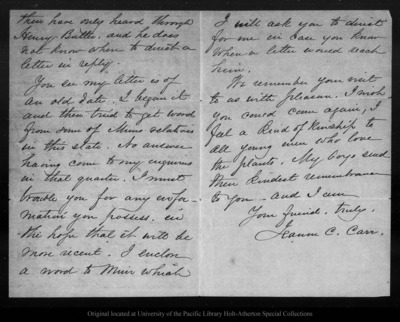 then have only heard through
Henry Butler, and he does
not know where to direct a
letter in reply.
You see my letter is of
an old date. I began it
and then tried to get word
from some of Muirs relatives
in this state. No answer
having come to my enquiries
in that quarter. I must
trouble you for any infor-
mation you possess, in
the hope that it will be
more recent. I enclose
a word to Muir which
I will ask you to direct
for me in case you know
where a letter would reach
him.
We remember your visit
to us with pleasure. I wish
you could come again, I
feel a kind of kinship to
all young men who love
the plants. My boys send
their kindest remembrance
to you - and I am
Your friend, truly,
Jeanne C. Carr.
Original located at University of the Pacific Library Holt-Atherton Special Collections